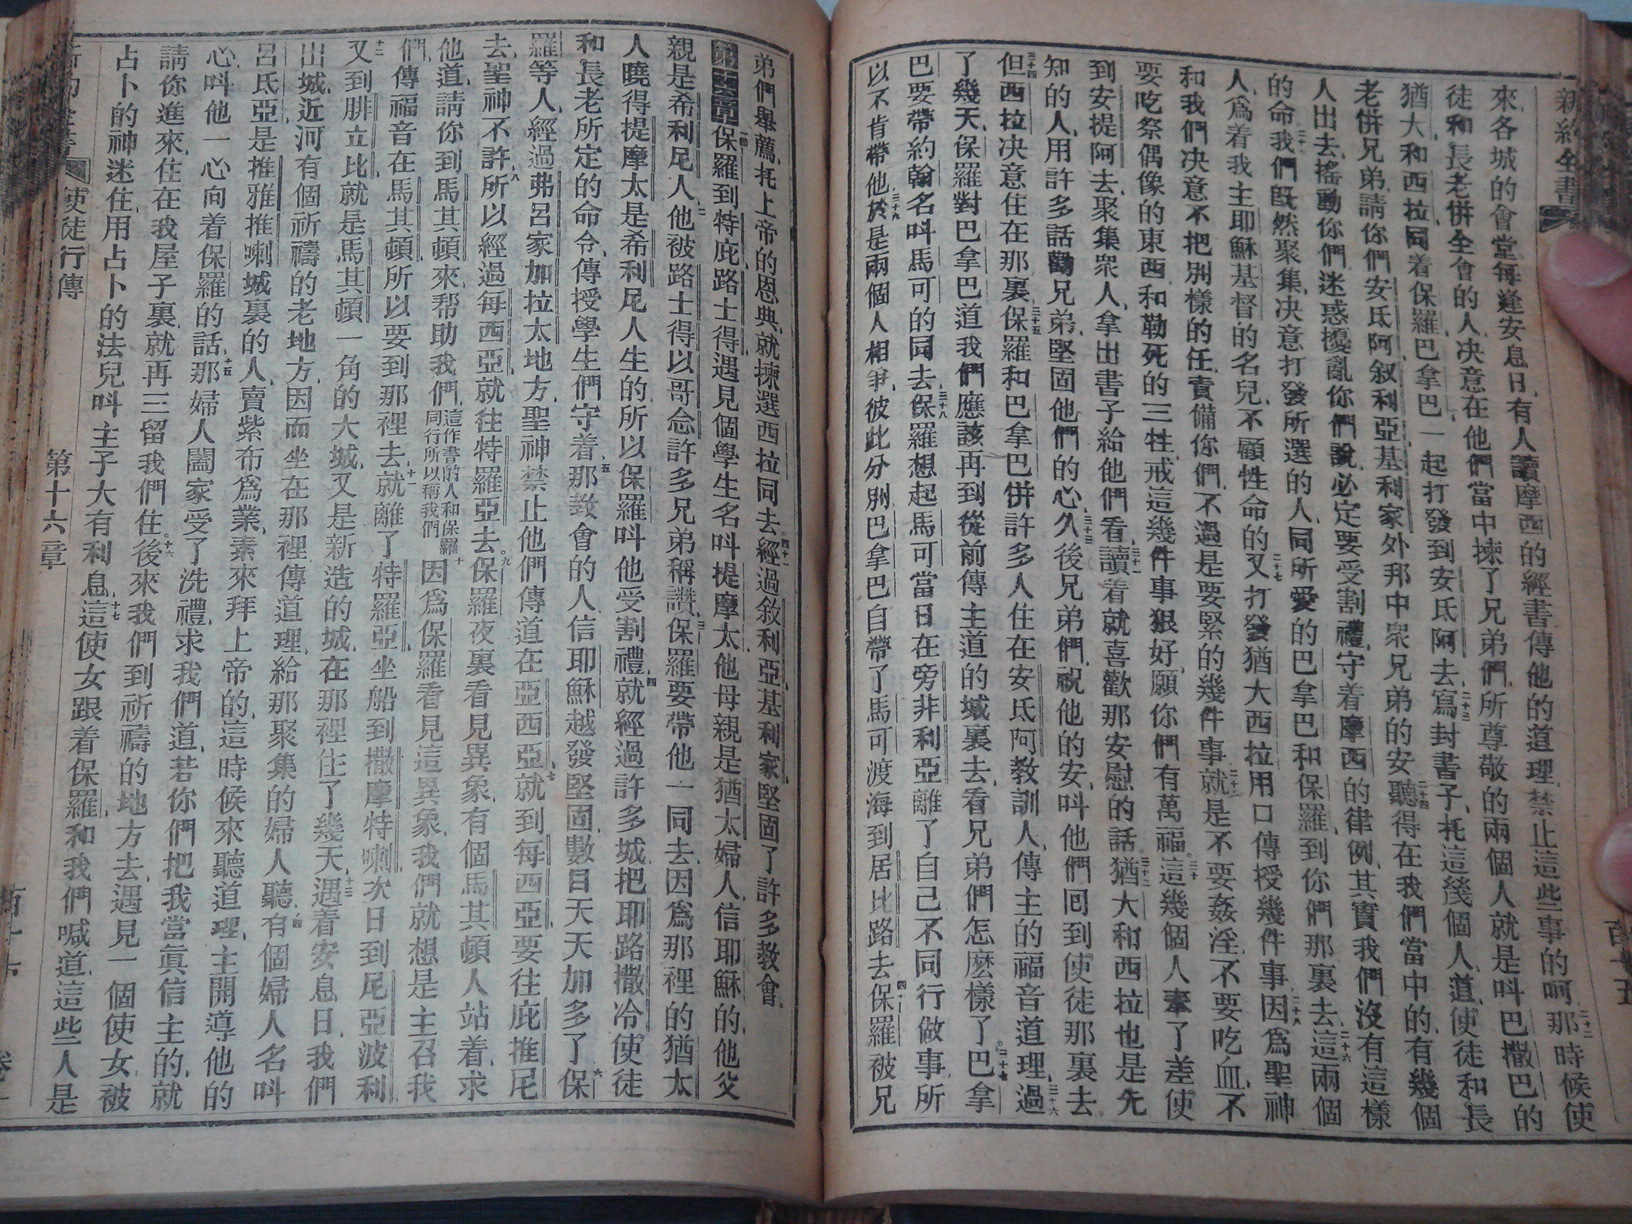 新約全書
來各城的會堂每逢安息日有人讀摩西的經書傳他的道理禁止這些事的呵二十二那時候使
徒和長老併全會的人决意在他們當中揀了兄弟們所尊敬的兩個人就是叫巴撒巴的
猶大和西拉同着保羅巴拿巴一起打發到安氐阿去二十三寫封書子托這幾個人道使徒和長
老併兄弟請你們安氐阿叙利亞基利家外邦中衆兄弟的安二十四聽得在我們當中的有幾個
人出去搖動你們迷惑擾亂你們說必定要受割禮守着摩西的律例其實我們沒有這樣
的命二十五我們既然聚集决意打發所選的人同所愛的巴拿巴和保羅到你們那裏去二十六這兩個
人爲着我主耶穌基督的名兒不顧性命的二十七又打發猶大西拉用口傳授幾件事二十八因爲聖神
和我們决意不把別樣的任責備你們不過是要緊的幾件事二十九就是不要姦淫不要吃血不
要吃祭偶像的東西和勒死的三牲戒這幾件事狠好願你們有萬福三十這幾個人奉了差使
到安提阿去聚集衆人拿出書子給他們看三十一讀着就喜歡那安慰的話三十二猶大和西拉也是先
知的人用許多話勸兄弟堅固他們的心三十三久後兄弟們祝他的安叫他們回到使徒那裏去
三十四但西拉决意住在那裏三十五保羅和巴拿巴併許多人住在安氐阿教訓人傳主的福音道理三十六過
了幾天保羅對巴拿巴道我們應該再到從前傳主道的城裏去看兄弟們怎麼樣了三十七巴拿
巴要帶約翰名叫馬可的同去三十八保羅想起馬可當日在旁非利亞離了自己不同行做事所
以不肯帶他三十九於是兩個人相爭彼此分別巴拿巴自帶了馬可渡海到居比路去四十保羅被兄
弟們舉薦托上帝的恩典就揀選西拉同去四十一經過敘利亞基利家堅固了許多教會
第十六章一保羅到特庇路士得遇見個學生名叫提摩太他母親是猶太婦人信耶穌的他父
親是希利尼人二他被路士得以哥念許多兄弟稱讚三保羅要帶他一同去因爲那裡的猶太
人曉得提摩太是希利尼人生的所以保羅叫他受割禮四就經過許多城把耶路撒冷使徒
和長老所定的命令傳授學生們守着五那教會的人信耶穌越發堅固數目天天加多了六保
羅等人經過弗呂家加拉太地方聖神禁止他們傳道在亞西亞七就到每西亞要往庇推尼
去聖神不許八所以經過每西亞就往特羅亞去九保羅夜裏看見異象有個馬其頓人站着求
他道請你到馬其頓來幇助我們這作書的人和保羅同行所以稱我們十因爲保羅看見這異象我們就想是主召我
們傳福音在馬其頓所以要到那裡去十一就離了特羅亞坐船到撒摩特喇次日到尼亞波利
十二又到腓立比就是馬其頓一角的大城又是新造的城在那裡住了幾天十三遇着安息日我們
出城近河有個祈禱的老地方因而坐在那裡傳道理給那聚集的婦人聽十四有個婦人名叫
呂氏亞是推雅推喇城裏的人賣紫布爲業素來拜上帝的這時候來聽道理主開導他的
心叫他一心向着保羅的話十五那婦人闔家受了洗禮求我們道若你們把我當真信主的就
請你進來住在我屋子裏就再三留我們住十六後來我們到祈禱的地方去遇見一個使女被
占卜的神迷住用占卜的法兒叫主子大有利息十七這使女跟着保羅和我們喊道這些人是
使徒行傳
第十六章